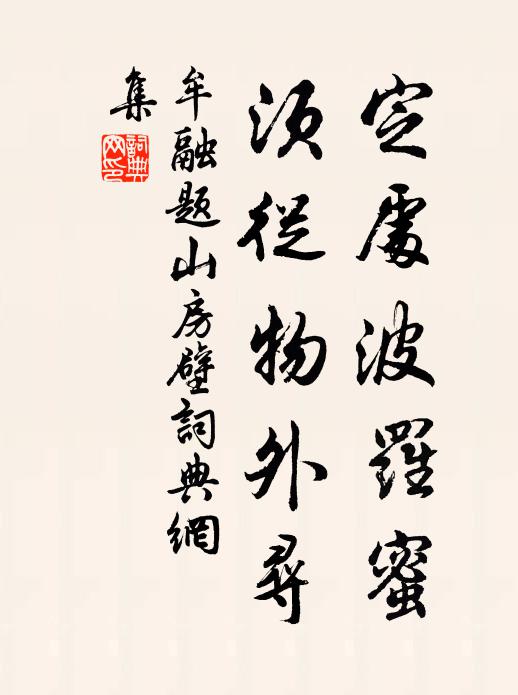 定處波羅蜜
須從物外尋
牟融題山房壁詞典網
集
詞典
网印